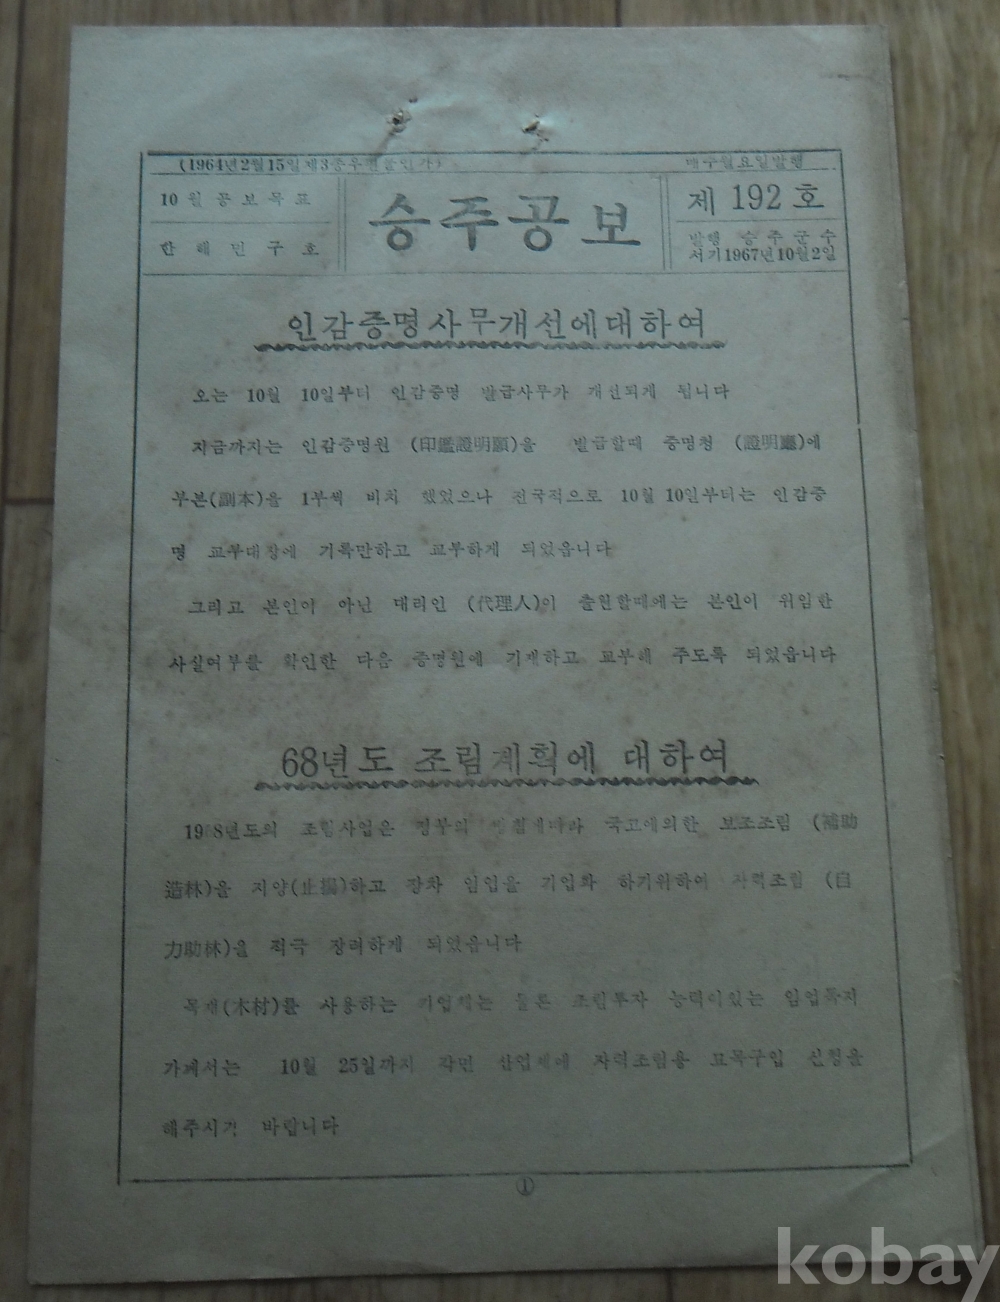 (1964년2월15일제3종우편물인가)
매주월요일발행
10월공보목표
한해민구호
승주공보
제 192 호
발행 승주군수
서기1967년10월2일
인감증명사무개선에대하여
오는 10월 10일부터 인감증명 발급사무가 개선되게 됩니다
지금까지는 인감증명원 (印鑑證明願)을 발급할때 증명청 (證明廳)에
부본(副本)을 1부씩 비치 했었으나 전국적으로 10월 10일부터는 인감증
명 교부대장에 기록만하고 교부하게 되었읍니다
그리고 본인이 아닌 대리인 (代理人)이 출원할때에는 본인이 위임한
사실여부를 확인한 다음 증명원에 기재하고 교부해 주도록 되었읍니다
68년도 조림계획에 대하여
1968년도의 조림사업은 정부의 방침에따라 국고에의한 보조조림 (補助
造林)을 지양(止揚)하고 장차 임업을 기업화 하기위하여 자력조림 (自
力助林)을 적극 장려하게 되었읍니다
목재(木材)를 사용하는 기업체는 물론 조림투자 능력이있는 임업독지
가께서는 10월 25일까지 각면 산업계에 자력조림용 묘목구입 신청을
해주시기 바랍니다
①
kobay